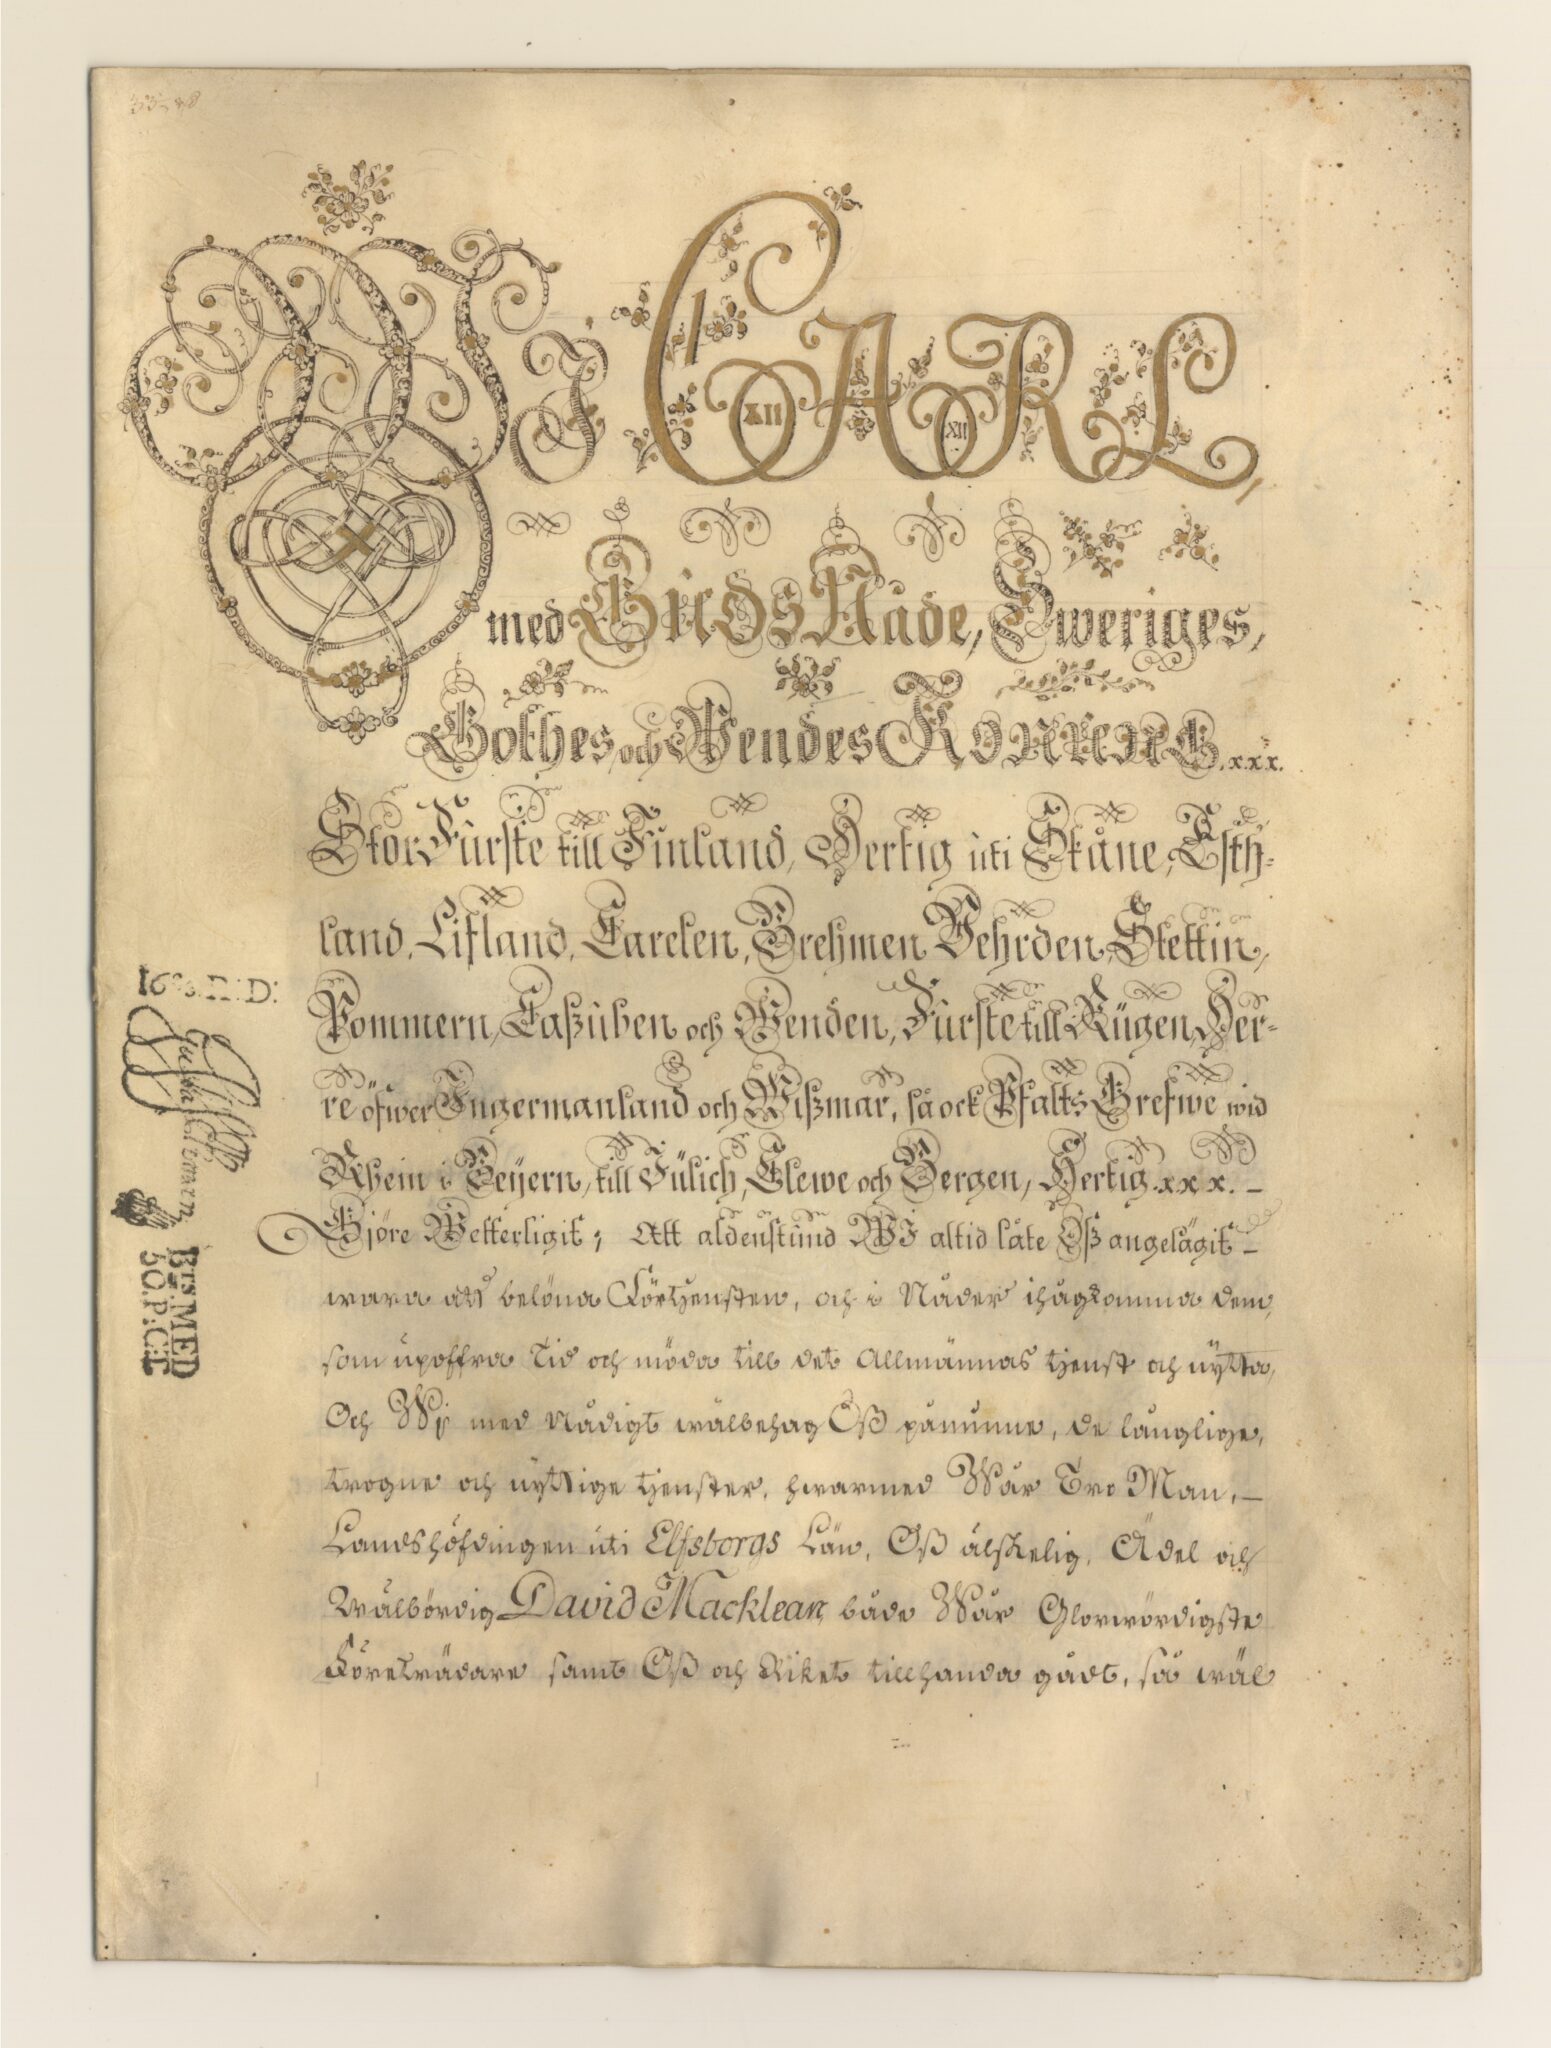 WJ CARL,
XII XII
med Guds Nåde, Sweriges,
Göthes och Wendes Konung .x.x.x.
StorFürste till Finland, Hertig uti Skåne, Esth-
land, Lifland, Carelen, Brehmen Vehrden, Stettin,
Pommern, Caßuben och Wenden, Fürste till Rügen, Her-
re öfwer Ingermanland och Wißmar, så ock Pfaltz Grefwe wid
Rhein i Beyern, till Jülich, Clewe och Bergen, Hertig .x.x.x.
Gjöre Wetterligit; Att aldenstund WJ altid låte Oß angelägit
wara att belöna Förtjensten, och i Nåder ihågkomma dem,
som upoffra Tid och möda till det Allmännas tjenst och nytta,
Och Wij med nådigt wälbehag Oß påminne, de långlige,
trogne och nyttige tjenster, hwarmed Wår Tro Man,
Landshöfdingen uti Elfsborgs Län, Oß älskelig, Ädel och
Wälbördig David Macklean, både Wår Glorwördigste
Företrädare samt Oß och Riket tillhanda gådt, så wäl
BTS. MED
50. P: C:T